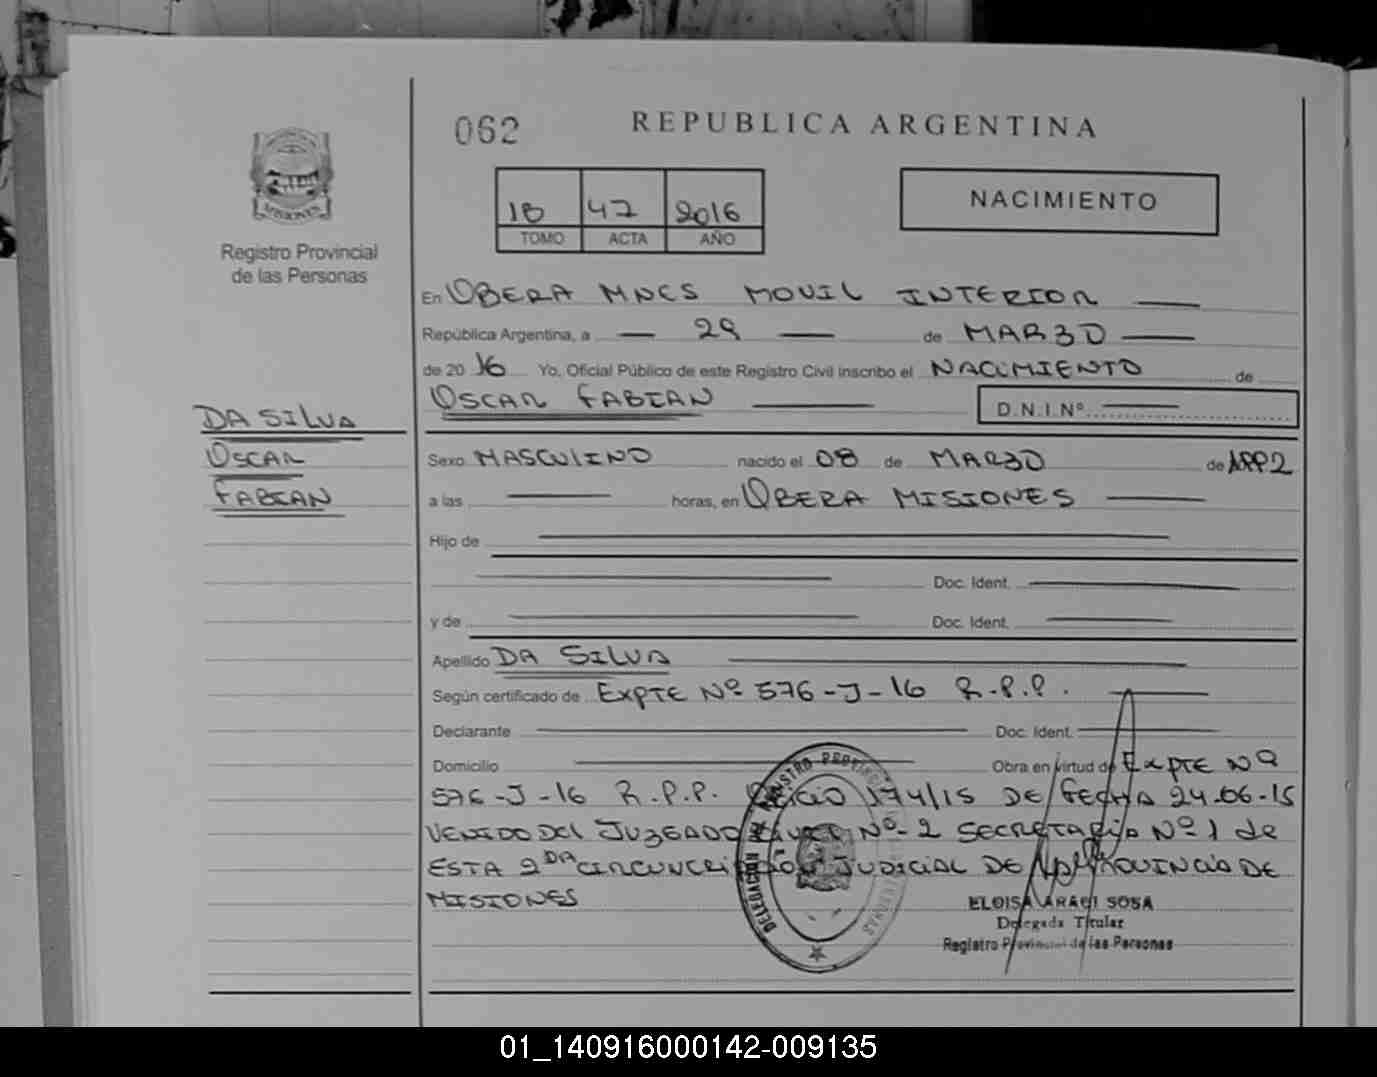 062
REPUBLICA ARGENTINA
MISIONES
Registro Provincial
de las Personas
18 47 2016
TOMO ACTA AÑO
NACIMIENTO
En OBERA MNES MOVIL INTERIOR
República Argentina, a 29 de MARZO
de 2016 Yo, Oficial Público de este Registro Civil inscribo el NACIMIENTO de
OSCAR FABIAN D.N.I.Nº
DA SILVA
OSCAR
FABIAN
Sexo MASCULINO nacido el 08 de MARZO de 1992
a las horas, en OBERA MISIONES
Hijo de
Doc. Ident.
y de Doc. Ident.
Apellido DA SILVA
Según certificado de EXPTE Nº 576-J-16 R.P.P.
Declarante Doc. Ident.
Domicilio Obra en virtud de EXPTE Nº
576-J-16 R.P.P. OFICIO 174/15 DE FECHA 24-06-15
VENIDO DEL JUZGADO CIVIL Nº-2 SECRETARIA Nº1 de
ESTA 2DA CIRCUNCRIPCION JUDICIAL DE LA PROVINCIA DE
MISIONES
DELEGACION DEL REGISTRO PROVINCIAL PERSONAS
ELOISA ARACI SOSA
Delegada Titular
Registro Provincial de las Personas
01_140916000142-009135